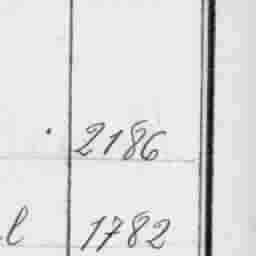 . 2186
l 1782